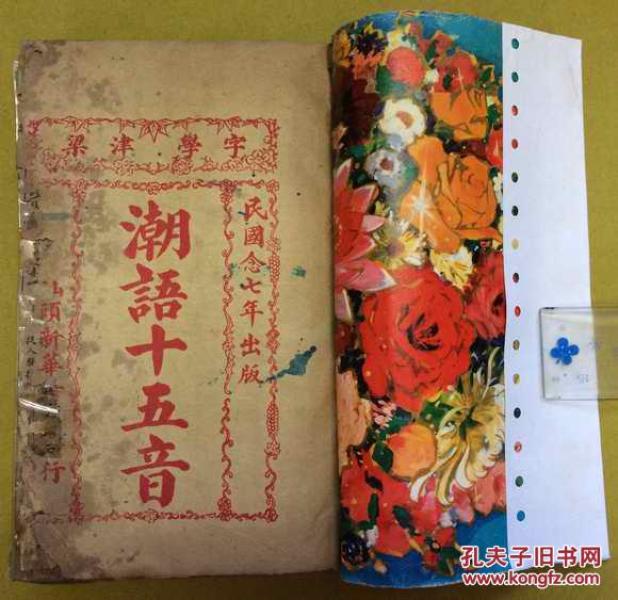 字學津梁
民國念七年出版
潮語十五音
汕頭新華
行
孔夫子旧书网
www.kongfz.com